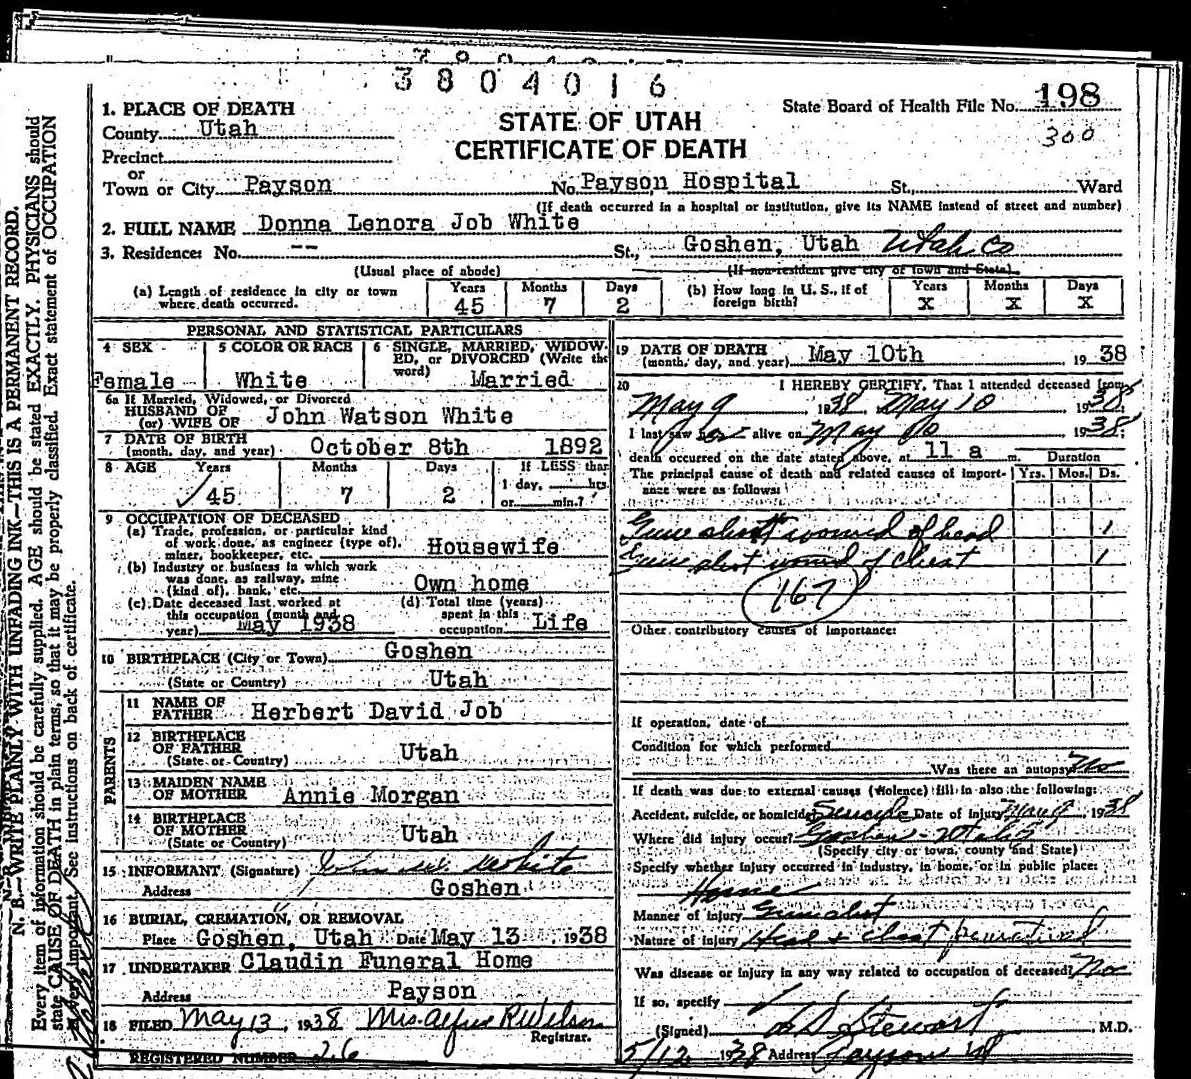 3804016
State Board of Health File No. 198
300
STATE OF UTAH
CERTIFICATE OF DEATH
1. PLACE OF DEATH
County Utah
Precinct
or
Town or City Payson No. Payson Hospital St., Ward
(If death occurred in a hospital or institution, give its NAME instead of street and number)
2. FULL NAME Donna Lenora Job White
3. Residence: No. -- St., Goshen, Utah Utah Co
(Usual place of abode) (If non-resident give city or town and State)
(a) Length of residence in city or town where death occurred. Years 45 Months 7 Days 2
(b) How long in U. S., if of foreign birth? Years X Months X Days X
PERSONAL AND STATISTICAL PARTICULARS
4 SEX Female
5 COLOR OR RACE White
6 SINGLE, MARRIED, WIDOWED, or DIVORCED (Write the word) Married
6a If Married, Widowed, or Divorced
HUSBAND OF
(or) WIFE OF John Watson White
7 DATE OF BIRTH
(month, day, and year) October 8th 1892
8 AGE Years 45 Months 7 Days 2
If LESS than
1 day, hrs.
or min.?
9 OCCUPATION OF DECEASED
(a) Trade, profession, or particular kind
of work done, as engineer (type of),
miner, bookkeeper, etc. Housewife
(b) Industry or business in which work
was done, as railway, mine
(kind of), bank, etc. Own home
(c) Date deceased last worked at
this occupation (month and
year) May 1938
(d) Total time (years)
spent in this
occupation Life
10 BIRTHPLACE (City or Town) Goshen
(State or Country) Utah
PARENTS
11 NAME OF
FATHER Herbert David Job
12 BIRTHPLACE
OF FATHER
(State or Country) Utah
13 MAIDEN NAME
OF MOTHER Annie Morgan
14 BIRTHPLACE
OF MOTHER
(State or Country) Utah
15 INFORMANT (Signature) John W. White
Address Goshen
16 BURIAL, CREMATION, OR REMOVAL
Place Goshen, Utah Date May 13 1938
17 UNDERTAKER Claudin Funeral Home
Address Payson
18 FILED May 13, 1938 Mrs.
Registrar.
REGISTERED NUMBER 26
19 DATE OF DEATH
(month, day, and year) May 10th 1938
20 I HEREBY CERTIFY, That I attended deceased from
May 9 1938 May 10 1938
I last saw her alive on May 10 1938
death occurred on the date stated above, at 11 a m.
Duration
The principal cause of death and related causes of importance were as follows:
Yrs. Mos. Ds.
Gun shot wound of head 1
Gun shot wound of chest 1
167
Other contributory causes of importance:
If operation, date of
Condition for which performed
Was there an autopsy? No
If death was due to external causes (violence) fill in also the following:
Accident, suicide, or homicide? Suicide Date of injury May 9 1938
Where did injury occur? Goshen - Utah
(Specify city or town, county and State)
Specify whether injury occurred in industry, in home, or in public place:
Home
Manner of injury Gun shot
Nature of injury Head & chest punctured
Was disease or injury in any way related to occupation of deceased? No
If so, specify
(Signed) Stewart, M.D.
5/12 1938 Address Payson Ut
N. B.—WRITE PLAINLY WITH UNFADING INK—THIS IS A PERMANENT RECORD.
Every item of information should be carefully supplied. AGE should be stated EXACTLY. PHYSICIANS should
state CAUSE OF DEATH in plain terms, so that it may be properly classified. Exact statement of OCCUPATION
is very important. See instructions on back of certificate.